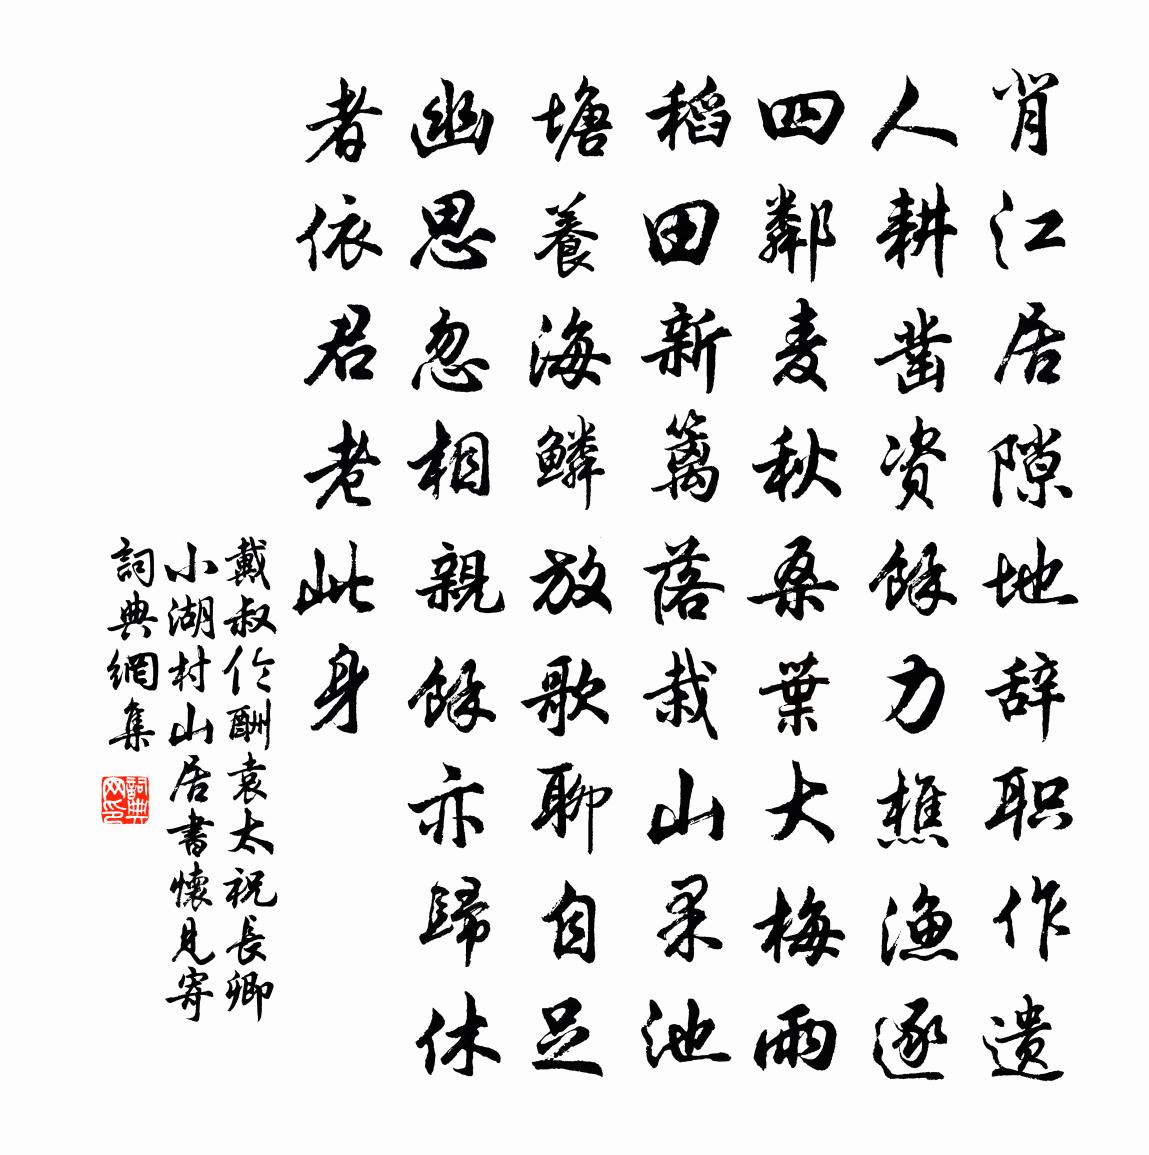 肖江居隙地辞职作遗
人耕凿资餘力樵渔逐
四鄰麦秋桑葉大梅雨
稻田新籬落栽山果池
塘養海鱗放歌聊自足
幽思忽相親餘亦歸休
者依君老此身
戴叔伦酬袁太祝長卿
小湖村山居書懷見寄
詞典網集
詞典
网印